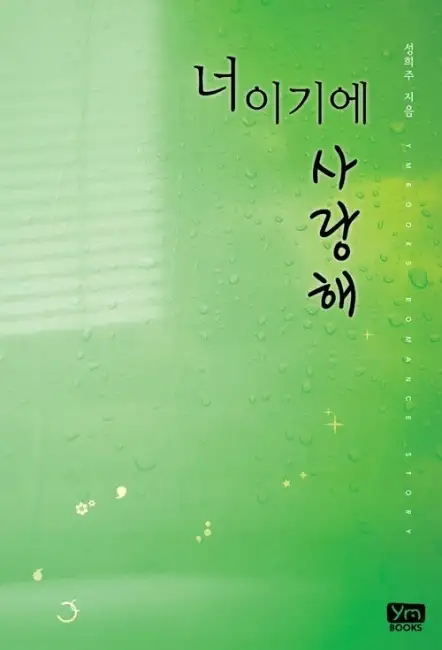 너이기에
사랑해
성희주 지음
YMBOOKS ROMANCE STORY
ym
BOOKS